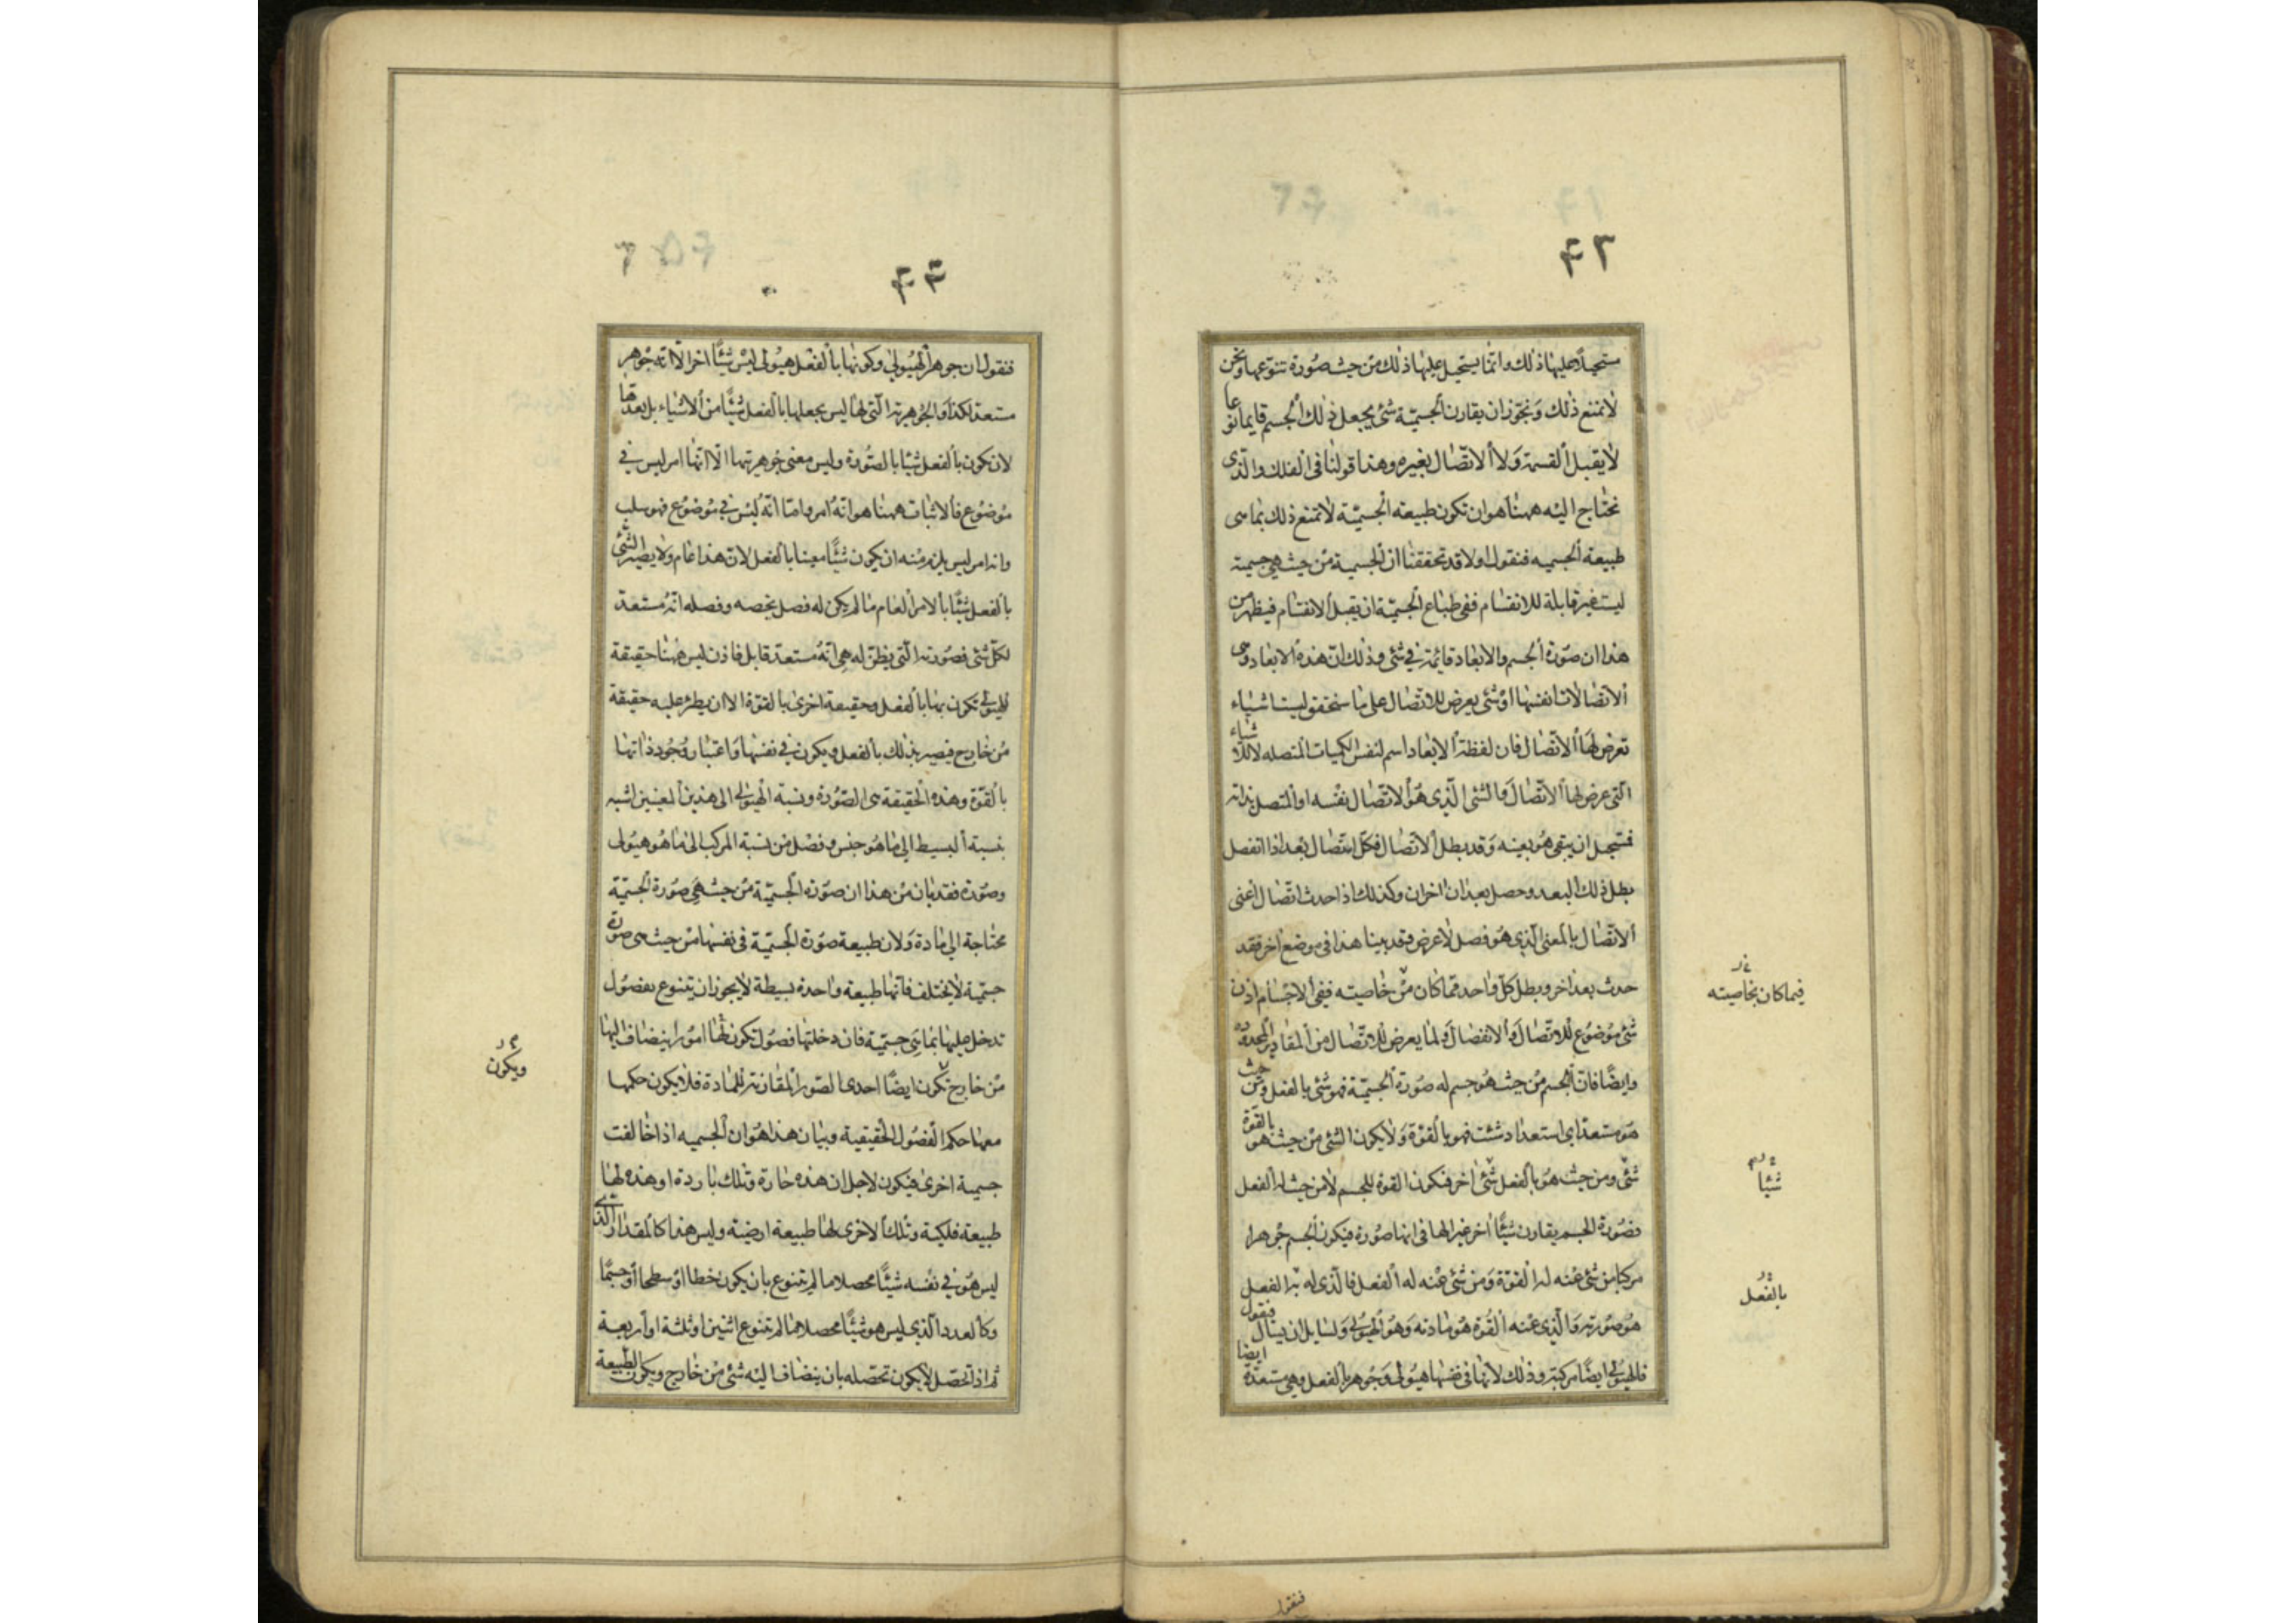 ۴۳
مستحيلا عليها ذلك وانما يستحيل عليها ذلك من حيث صورة تنوعها ونحن
لا نمنع ذلك ونجوز ان يقارن الجسمية شئ يجعل ذلك الجسم قايما نوعا
لا يقبل القسمة ولا الاتصال بغيره وهذا قولنا فى الفلك والذى
نحتاج اليه ههنا هو ان تكون طبيعة الجسمية لا تمنع ذلك بما هى
طبيعة الجسميه فنقول اولا قد تحققنا ان الجسمية من حيث هى جسمية
ليست غير قابلة للانقسام ففى طباع الجسمية ان يقبل الانقسام فيظهر من
هذا ان صورة الجسم والابعاد قائمة فى شئ وذلك ان هذه الابعاد هى
الاتصالات انفسها او شئ يعرض للاتصال على ما سنحققه ليست اشياء
تعرض لها الاتصال فان لفظة الابعاد اسم لنفس الكميات المتصله لا للاشياء
التى عرض لها الاتصال والشئ الذى هو الاتصال نفسه او المتصل بذاته
فمستحيل ان يبقى هو بعينه وقد بطل الاتصال فكل اتصال بعد اذا انفصل
بطل ذلك البعد وحصل بعدان اخران وكذلك اذا حدث اتصال اعنى
الاتصال بالمعنى الذى هو فصل لا عرض وقد بينا هذا فى موضع اخر فقد
حدث بعد اخر وبطل كل واحد مما كان من خاصيته ففى الاجسام اذن
فيما كان بخاصيته
شئ موضوع للاتصال والانفصال ولما يعرض للاتصال من المقادير المحدودة
وايضا فان الجسم من حيث هو جسم له صورة الجسمية فهو شئ بالفعل ومن حيث
هو مستعد اى استعداد شئت فهو بالقوة ولا يكون الشئ من حيث هو بالقوة
شئ ومن حيث هو بالفعل شئ اخر فتكون القوة للجسم لا من حيث له الفعل
شيئا
فصورة الجسم يقارن شيئا اخر غيرا لها فى انها صورة فيكون الجسم جوهرا
مركبا من شئ عنه له القوة ومن شئ عنه له الفعل فالذى له به الفعل
بالفعل
هو صورته والذى عنه القوة هو مادته وهو الهيولى ولسايل ان يسال فيقول
فالهيولى ايضا مركبة وذلك لانها فى نفسها هيولى وجوهر بالفعل وهى مستعدة ايضا
فنقول
۴۴
فنقول ان جوهر الهيولى وكونها بالفعل هيولى ليس شيئا اخر الا انه جوهر
مستعد لكذا والجوهرية التى لها ليس يجعلها بالفعل شيئا من الاشياء بل يعدها
لان تكون بالفعل شيئا بالصورة وليس معنى جوهريتها الا انها امر ليس فى
موضوع فالاثبات ههنا هو انه امر واما انه ليس فى موضوع فهو سلب
وانه امر ليس يلزم منه ان يكون شيئا معينا بالفعل لان هذا عام ولا يصير الشئ
بالفعل شيئا بالامر العام ما لم يكن له فصل يخصه وفصله انه مستعد
لكل شئ فصورته التى يظن له هى انه مستعد قابل فاذن ليس ههنا حقيقة
للهيولى تكون بها بالفعل وحقيقة اخرى بالقوة الا ان يطرء عليه حقيقة
من خارج فيصير بذلك بالفعل ويكون فى نفسها واعتبار وجود ذاتها
بالقوة وهذه الحقيقة هى الصورة ونسبة الهيولى الى هذين المعنيين اشبه
بنسبة البسيط الى ما هو جنس وفصل من نسبة المركب الى ما هو هيولى
وصورة فقد بان من هذا ان صورة الجسمية من حيث هى صورة الجسمية
محتاجة الى مادة ولان طبيعة صورة الجسمية فى نفسها من حيث هى صورة
جسمية لا يختلف فانها طبيعة واحدة بسيطة لا يجوز ان يتنوع بفصول
تدخل عليها بما هى جسمية فان دخلتها فصول تكون لها امور ا يضاف اليها
من خارج تكون ايضا احدى الصور المقارنة للمادة فلا يكون حكمها
ويكون
معها حكم الفصول الحقيقية وبيان هذا هو ان الجسميه اذا خالفت
جسمية اخرى فيكون لاجل ان هذه حارة وتلك باردة او هذه لها
طبيعة فلكية وتلك الاخرى لها طبيعة ارضية وليس هذا كالمقدار الذى
ليس هو فى نفسه شيئا محصلا ما لم يتنوع بان يكون خطا او سطحا او جسما
وكالعدد الذى ليس هو شيئا محصلا ما لم يتنوع اثنين او ثلثة او اربعة
ثم اذا تحصل لا يكون تحصله بان ينضاف اليه شئ من خارج ويكون الطبيعة